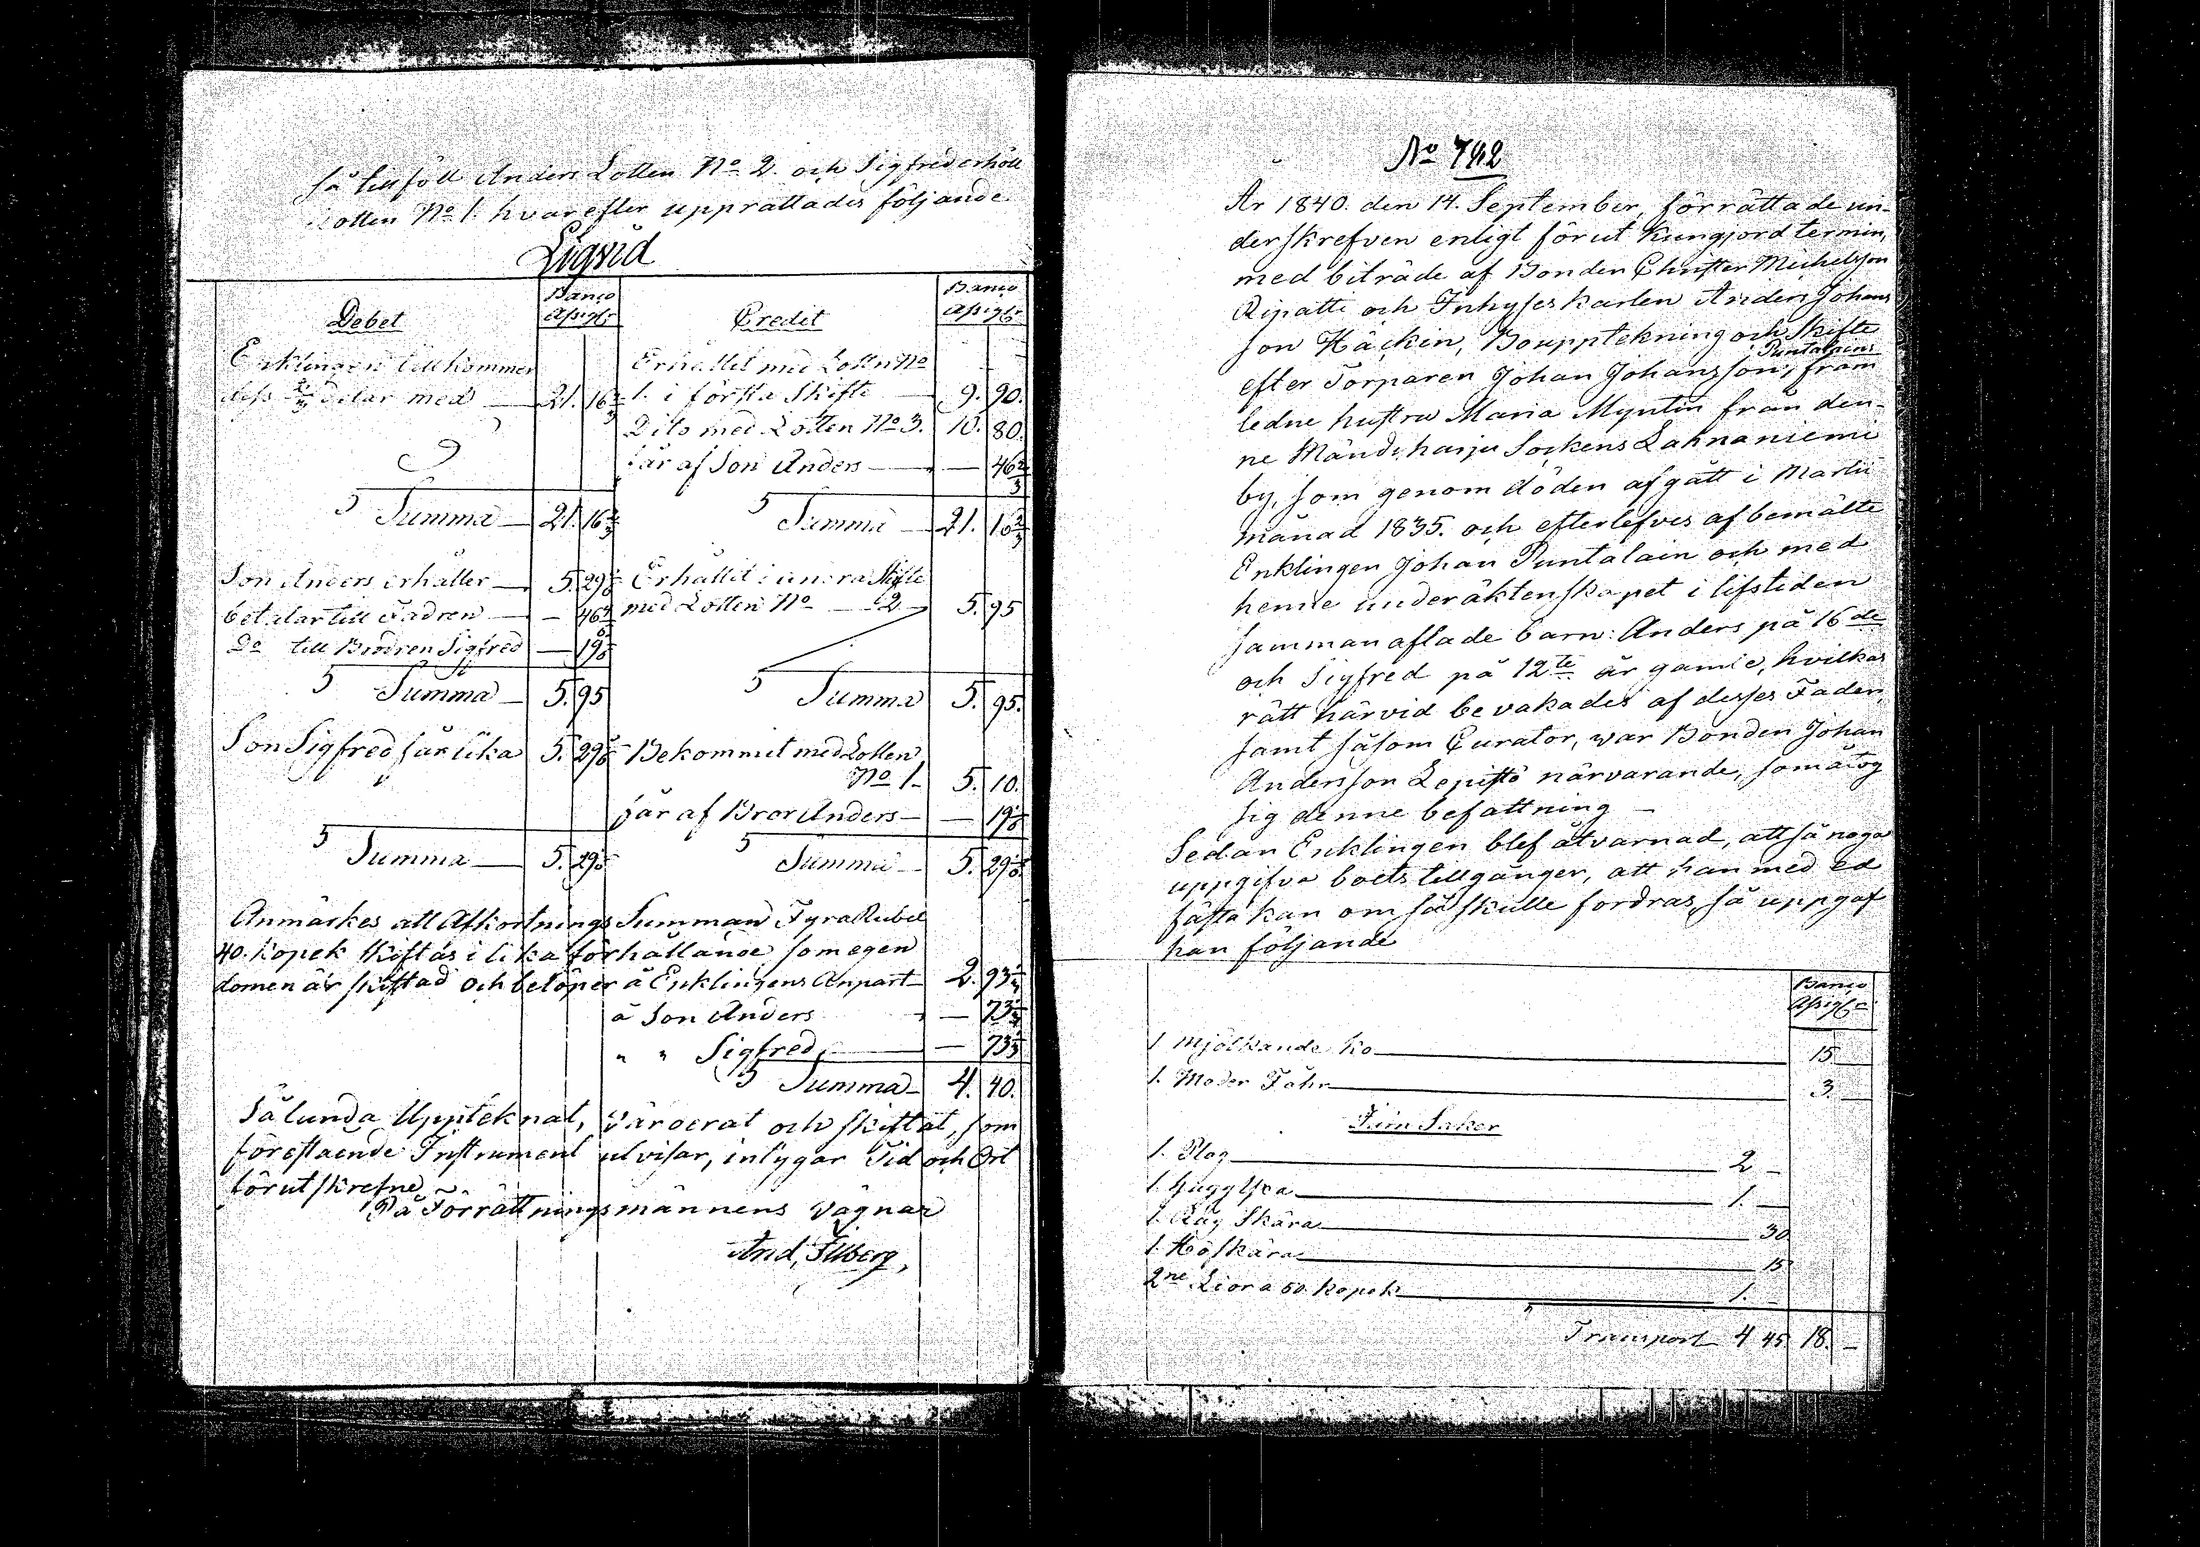 så tillföll Anders Lotten No 2. och Sigfred erhöll
Lotten No 1. hvarefter upprättades följande
Liqvid
Debet
Banco Assigt:
Credit
Banco Assigt:
Enklingen tillkommer
dess 2/3 delar med — 21. 16 2/3
Summa — 21. 16 2/3
Erhållet med Lotten No
1. i första Skifte — 9. 90.
Dito med Lotten No 3. 10. 80.
får af Son Anders — — 46 2/3
Summa — 21. 16 2/3
Son Anders erhåller — 5. 29 1/6
betalar till Fadren — — 46 2/3
Do till Brodren Sigfred — 19 1/6
Summa — 5. 95
Erhållit i andra Skifte
med Lotten No — 2 — 5. 95
Summa 5. 95.
Son Sigfred får lika 5. 29 1/6
Summa — 5. 29 1/6
Bekommit med Lotten
No 1. 5. 10.
får af Bror Anders — — 19 1/6
Summa — 5. 29 1/6
Anmärkes att Afkortnings Summan Fyra Rubel
40. kopek skiftas i lika förhållande som egen
domen är skiftad och belöper å Enklingens Anpart — 2. 93 1/3
å Son Anders — 73 1/3
" " Sigfred — — 73 1/3
Summa — 4. 40.
Sålunda Uppteknat, värderat och skiftat, som
förestående Instrument utvisar, intygar Tid och Ort
förutskrefne
På Förrättningsmännens vägnar
And, Filberg,
No 742
År 1840. den 14. September, förrättade un-
derskrefven enligt förut kungjord termin,
med biträde af Bonden Christer Michelsson
Ripatti och Inhyseskarlen Anders Johans
son Häckin, Bouppteckning och Skifte
Puntalains
efter Torparen Johan Johansson, fram
ledne hustru Maria Myntin från den-
ne Mändyharju Sockens Lahnaniemi
by, som genom döden afgått i Martii
månad 1835. och efterlefves af bemälte
Enklingen Johan Puntalain och med
henne under äktenskapet i lifstiden
sammanaflade barn: Anders på 16de
och Sigfred på 12te år gamle, hvilkas
rätt härvid bevakades af desses Fader,
samt såsom Curator, war Bonden Johan
Andersson Lepistö närvarande, som åtog
sig denne befattning —
Sedan Enklingen blef åtvarnad, att så noga
uppgifva boets tillgångar, att han med ed
fästa kan om så skulle fordras, så uppgaf
han följande
Banco
Assigt:
1. Mjölkande ko — 15
1. Moder Fåhr — 3.
Järn Saker
1. Plog — 2 —
1. Huggyxa — 1. —
1. Råg Skära — 30
1. Höskära — 15
2ne Liar a 50. kopek — 1. —
Transport 4 45 18. —